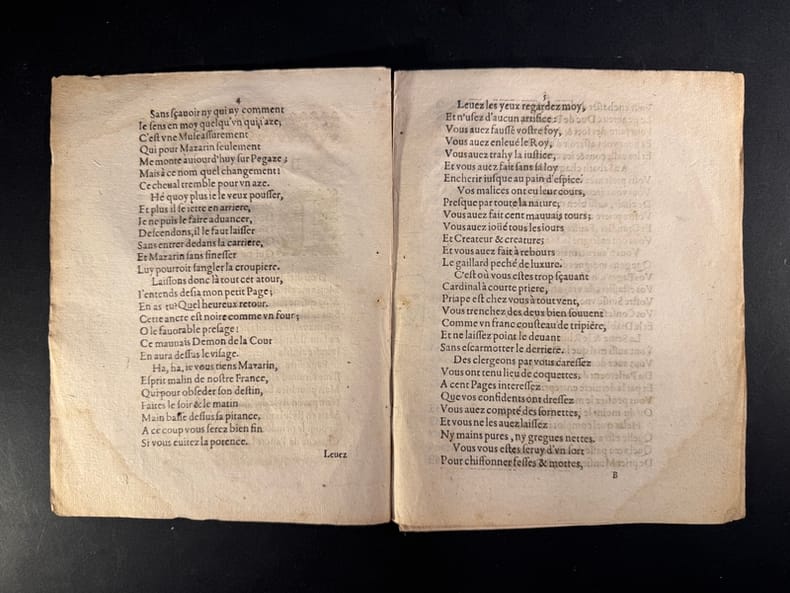 4
Sans sçauoir ny qui ny comment
Ie sens en moy quelqu'vn qui i'aze,
C'est vne Muse assurement
Qui pour Mazarin seulement
Me monte auiourd'huy sur Pegaze;
Mais à ce nom quel changement:
Ce cheual tremble pour vn aze.
Hé quoy plus ie le veux pousser,
Et plus il se iette en arriere,
Ie ne puis le faire aduancer,
Descendons, il le faut laisser
Sans entrer dedans la carriere,
Et Mazarin sans finesser
Luy pourroit sangler la croupiere.
Laissons donc là tout cet atour,
I'entends desia mon petit Page;
En as tu? Quel heureux retour.
Cette ancre est noire comme vn four;
O le fauorable presage:
Ce mauuais Demon de la Cour
En aura dessus le visage.
Ha, ha, ie vous tiens Mazarin,
Esprit malin de nostre France,
Qui pour obseder son destin,
Faites le soir & le matin
Main basse dessus sa pitance,
A ce coup vous serez bien fin
Si vous euitez la potence.
Leuez
5
Leuez les yeux regardez moy,
Et n'usez d'aucun artifice:
Vous auez faussé vostre foy,
Vous auez enleué le Roy,
Vous auez trahy la iustice,
Et vous auez fait sans sa loy
Encherir iusque au pain d'espice.
Vos malices ont eu leur cours,
Presque par toute la nature,
Vous auez fait cent mauuais tours;
Vous auez ioüé tous les iours
Et Createur & creature;
Et vous auez fait à rebours
Le gaillard peché de luxure.
C'est où vous estes trop sçauant
Cardinal à courte priere,
Priape est chez vous à tout vent,
Vous trenchez des deux bien souuent
Comme vn franc cousteau de tripière,
Et ne laissez point le deuant
Sans escarmotter le derriere.
Des clergeons par vous caressez
Vous ont tenu lieu de coquettes,
A cent Pages interessez
Que vos confidents ont dressez
Vous auez compté des sornettes,
Et vous ne les auez laissez
Ny mains pures, ny gregues nettes.
Vous vous estes seruy d'vn sort
Pour chiffonner fesses & mottes,
B